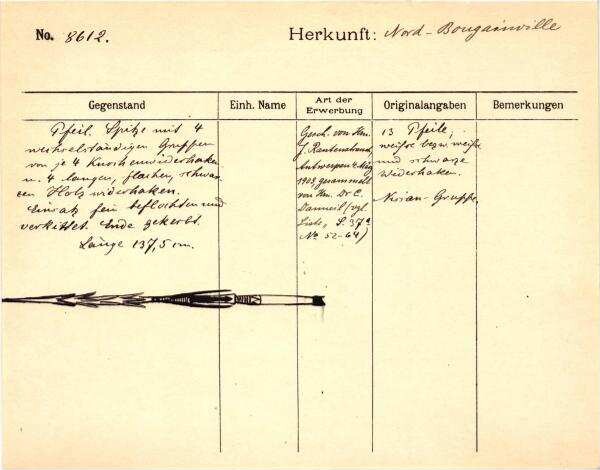 No. 8612.
Herkunft: Nord-Bougainville
Gegenstand
Einh. Name
Art der Erwerbung
Originalangaben
Bemerkungen
Pfeil. Spitze mit 4
wechselständigen Gruppen
von je 4 Knochenwiderhaken
u. 4 langen, flachen, schwar-
zen Holzwiderhaken.
Einsatz fein beflochten und
verkittet. Ende gekerbt.
Länge 137,5 cm.
Gesch. von Hrn.
J. Rautenstrauch,
Antwerpen
1903 gesammelt
von Hrn. Dr. C.
Danneil (vgl.
Liste, S. 37a
No 52-64)
13 Pfeile,
weisse bezw. weisse
und schwarze
Widerhaken.